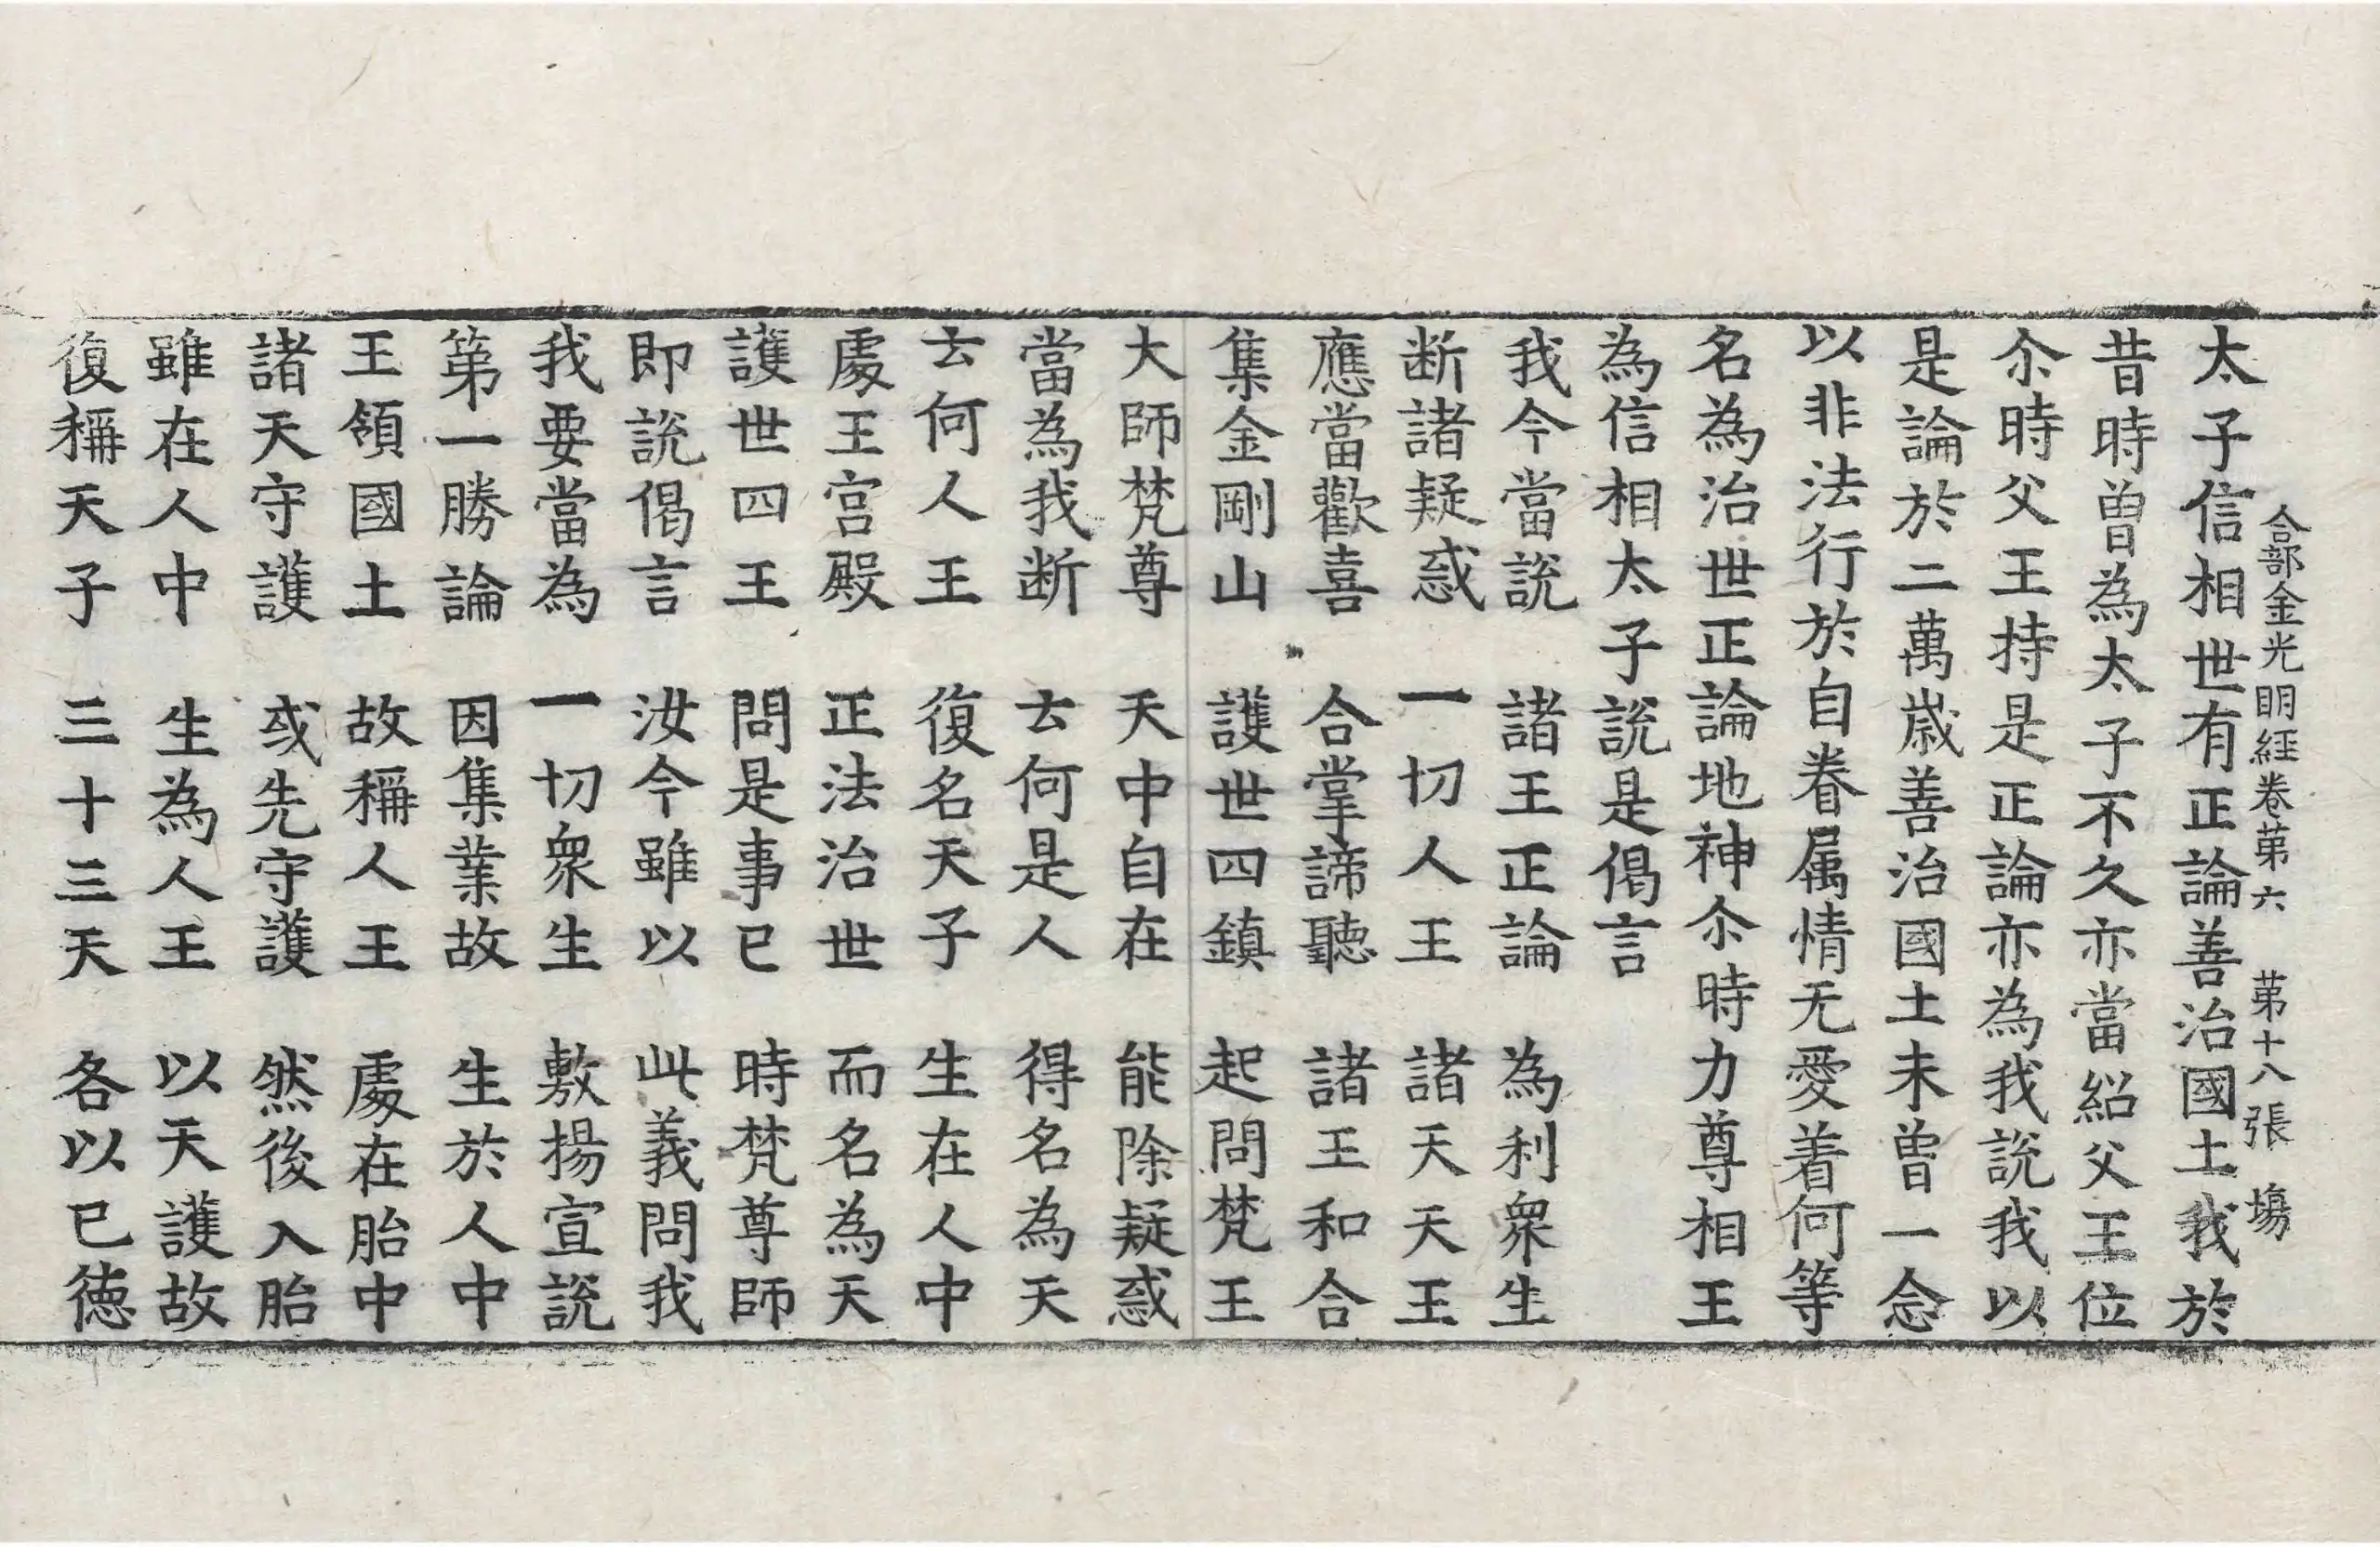 合部金光明経卷第六　第十八張　塲
太子信相世有正論善治國土我於
昔時曽為太子不久亦當紹父王位
尒時父王持是正論亦為我説我以
是論於二萬歳善治國土未曽一念
以非法行於自眷属情无愛着何等
名為治世正論地神尒時力尊相王
為信相太子説是偈言
我今當説　諸王正論　為利衆生
断諸疑惑　一切人王　諸天天王
應當歡喜　合掌諦聽　諸王和合
集金剛山　護世四鎮　起問梵王
大師梵尊　天中自在　能除疑惑
當為我断　云何是人　得名為天
云何人王　復名天子　生在人中
處王宫殿　正法治世　而名為天
護世四王　問是事已　時梵尊師
即説偈言　汝今雖以　此義問我
我要當為　一切衆生　敷揚宣説
第一勝論　因集業故　生於人中
王領國土　故稱人王　處在胎中
諸天守護　或先守護　然後入胎
雖在人中　生為人王　以天護故
復稱天子　三十三天　各以已徳